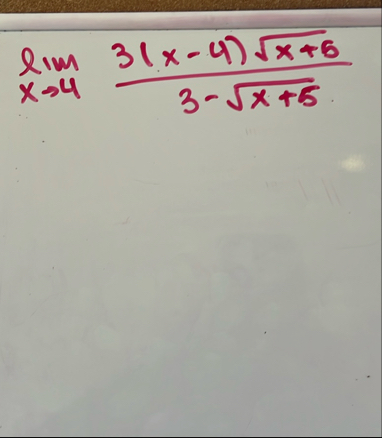 lim x→4 3(x-4)√x+5 / 3-√x+5